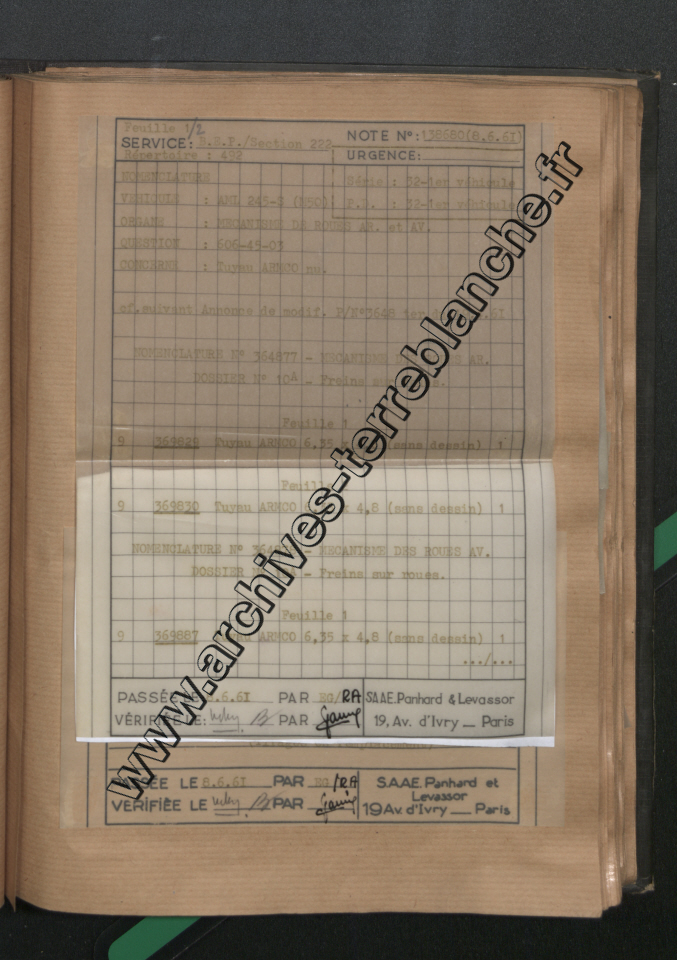 Feuille 1/2
SERVICE: B.E.F./Section 222 NOTE N°: 138680(8.6.61)
Répertoire : 492 URGENCE:
NOMENCLATURE Série : 32-1er véhicule
VEHICULE : AML 245-B P.D. : 32-1er véhicule
ORGANE : MECANISME DE ROUES AR. et AV.
QUESTION : 606-45-03
CONCERNE : Tuyau ARMCO nu.
cf.suivant Annonce de modif. P/N°3648 ter
NOMENCLATURE N° 364877 - MECANISME AR.
DOSSIER N° 10A - Freins sur roues.
Feuille 1
9 369829 Tuyau ARMCO 6,35 x (sans dessin) 1
Feuille
9 369830 Tuyau ARMCO x 4,8 (sans dessin) 1
NOMENCLATURE N° - MECANISME DES ROUES AV.
DOSSIER - Freins sur roues.
Feuille 1
9 369887 Tuyau ARMCO 6,35 x 4,8 (sans dessin) 1
.../...
PASSÉE LE 8.6.61 PAR EG/RA SAAE.Panhard & Levassor
VÉRIFIÉE LE: PAR 19, Av. d'Ivry __ Paris
PASSÉE LE 8.6.61 PAR EG/RA S.A.A.E. Panhard et
Levassor
VÉRIFIÉE LE PAR 19 Av. d'Ivry __ Paris
www.archives-terreblanche.fr